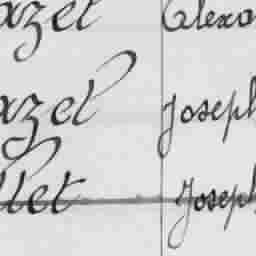 azel Alexa
azel Joseph
llet Joseph